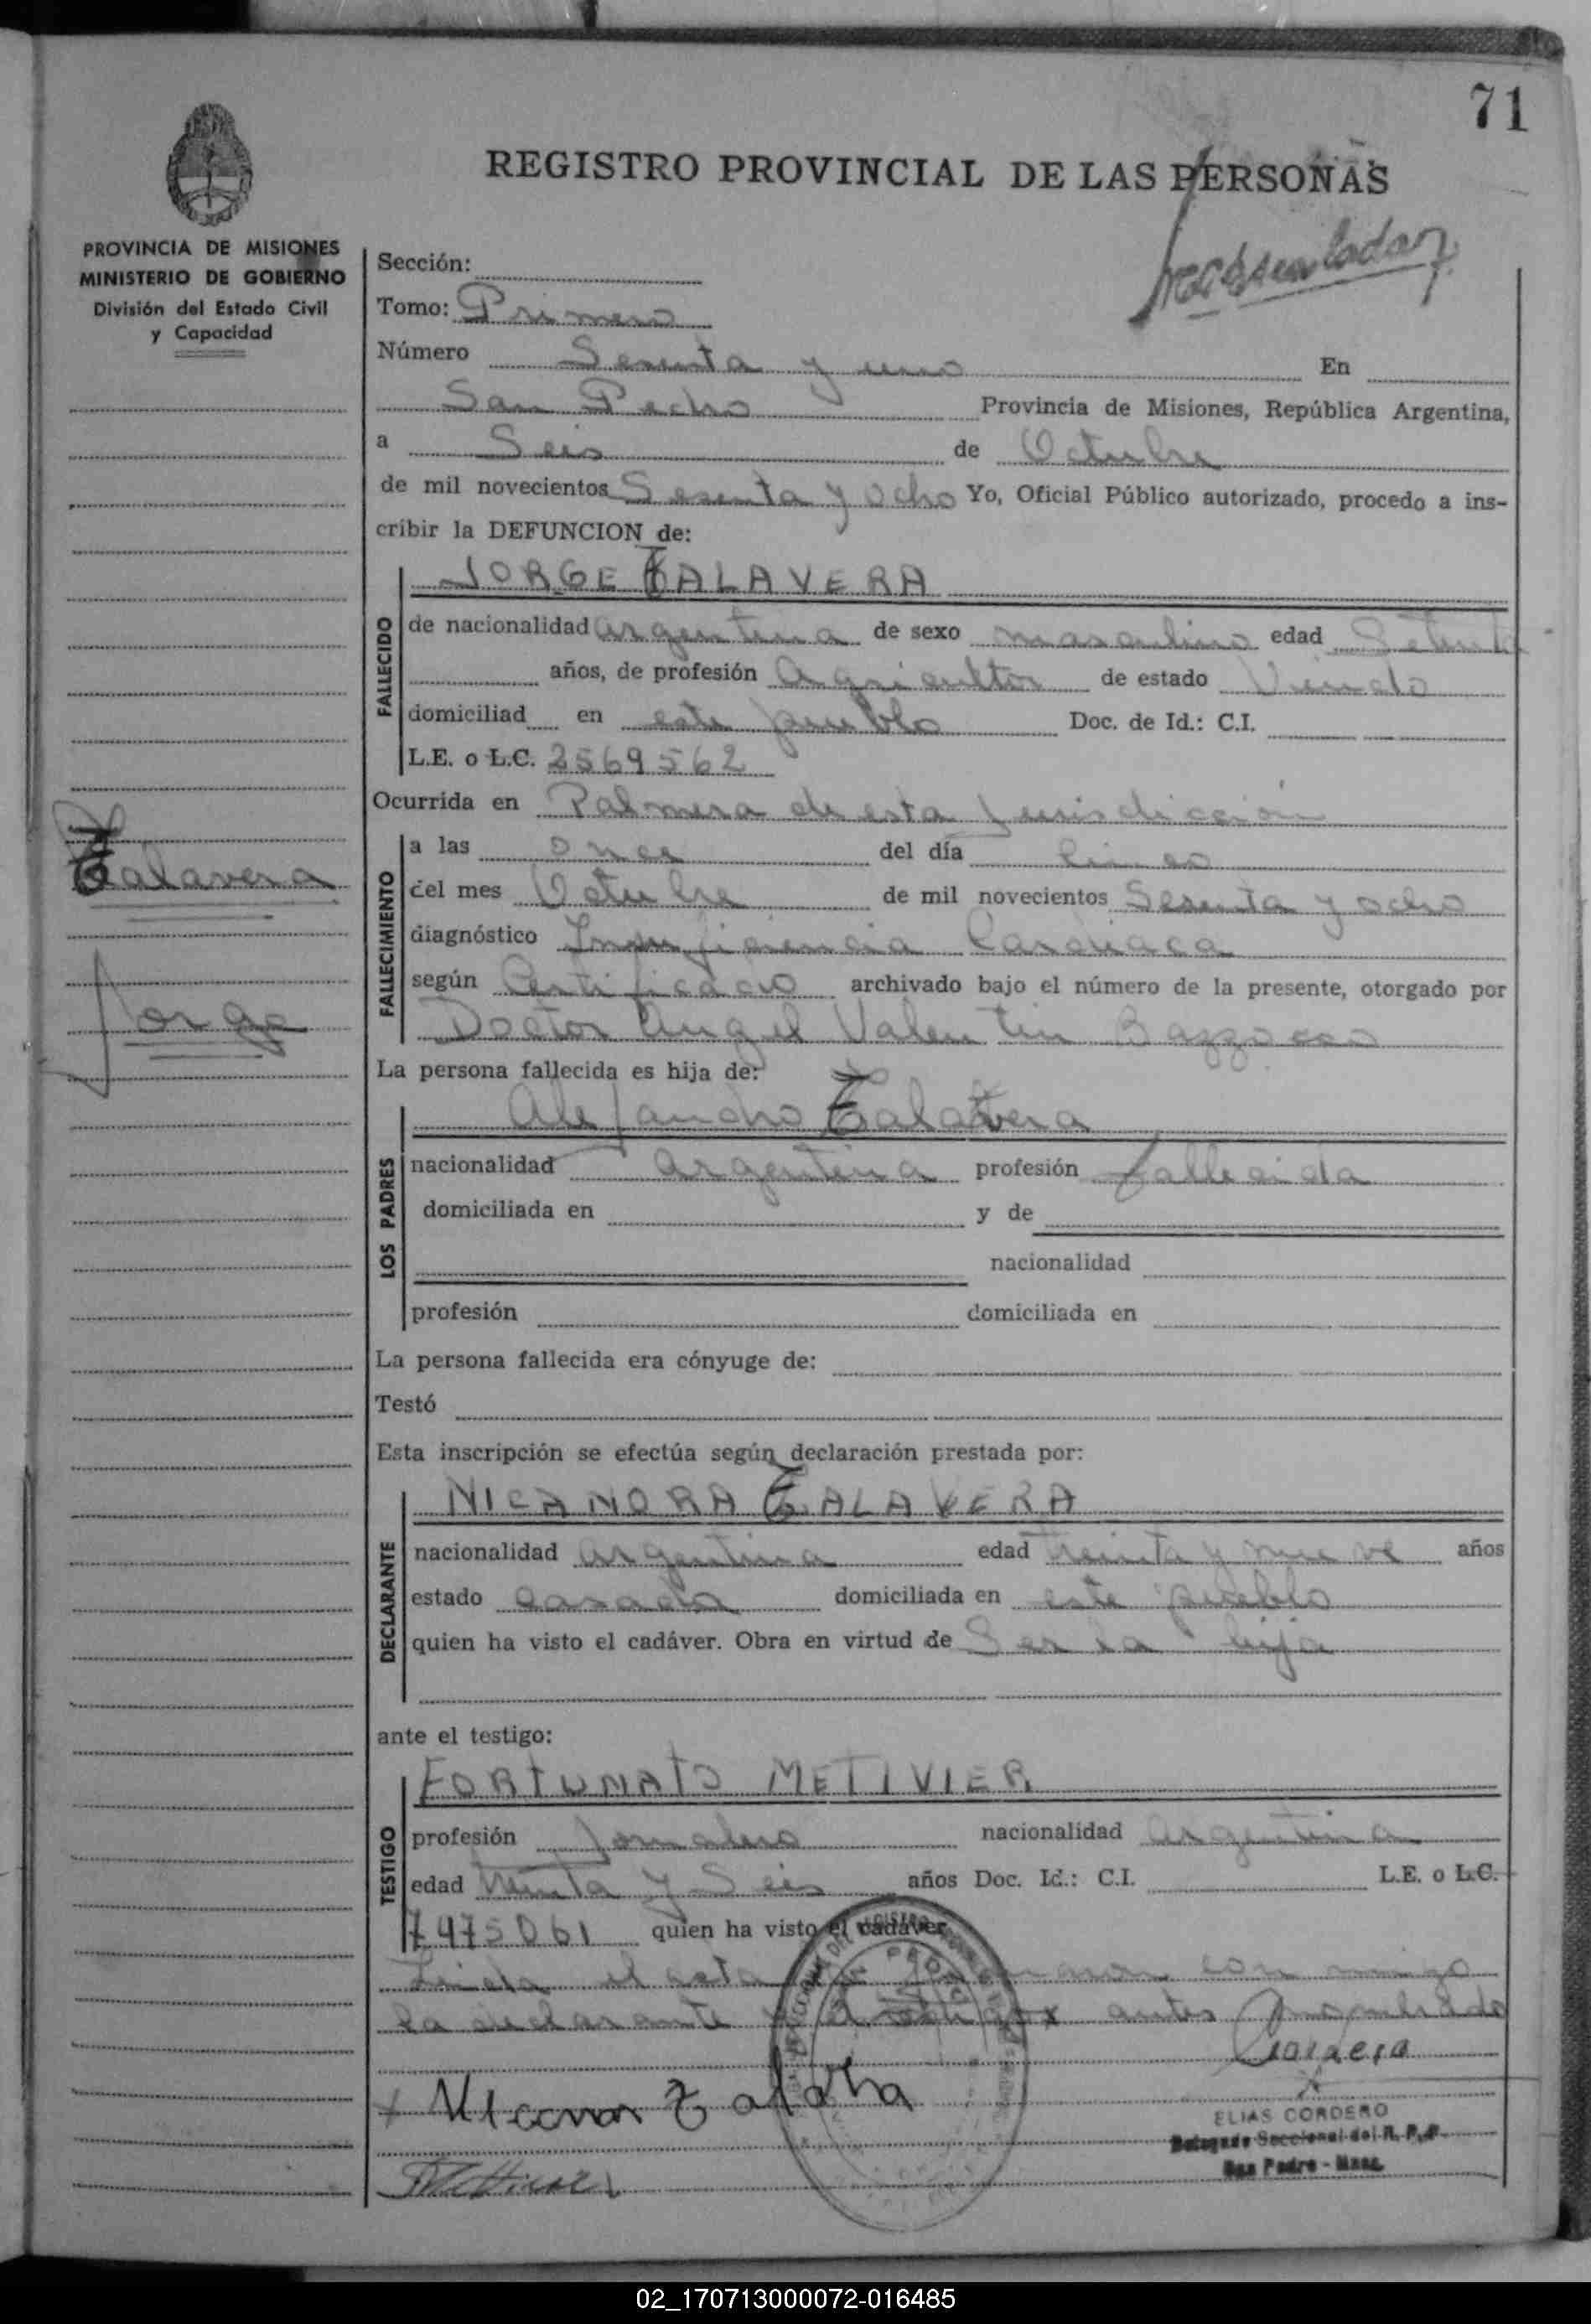 71
REGISTRO PROVINCIAL DE LAS PERSONAS
PROVINCIA DE MISIONES
MINISTERIO DE GOBIERNO
División del Estado Civil
y Capacidad
Sección:
Tomo: Primero
Número Sesenta y uno En
San Pedro Provincia de Misiones, República Argentina,
a Seis de Octubre
de mil novecientos Sesenta y ocho Yo, Oficial Público autorizado, procedo a ins-
cribir la DEFUNCION de:
JORGE TALAVERA
FALLECIDO
de nacionalidad argentina de sexo masculino edad Setenta
años, de profesión Agricultor de estado Viudo
domiciliad en este pueblo Doc. de Id.: C.I.
L.E. o L.C. 2569562
Ocurrida en Palmera de esta Jurisdicción
Talavera
Jorge
FALLECIMIENTO
a las once del día cinco
del mes Octubre de mil novecientos Sesenta y ocho
diagnóstico Insuficiencia Cardiaca
según Certificado archivado bajo el número de la presente, otorgado por
Doctor Angel Valentin Bazzocco
La persona fallecida es hija de:
Alejandro Talavera
LOS PADRES
nacionalidad argentina profesión fallecida
domiciliada en y de
nacionalidad
profesión domiciliada en
La persona fallecida era cónyuge de:
Testó
Esta inscripción se efectúa según declaración prestada por:
NICANORA TALAVERA
DECLARANTE
nacionalidad argentina edad treinta y nueve años
estado casada domiciliada en este pueblo
quien ha visto el cadáver. Obra en virtud de Ser la hija
ante el testigo:
FORTUNATO METIVIER
TESTIGO
profesión Jornalero nacionalidad argentina
edad treinta y Seis años Doc. Id.: C.I. L.E. o L.C.
7475061 quien ha visto el cadáver
Leida el acta con migo
la declarante y el testigo antes nombrado
ELIAS CORDERO
Delegado Seccional del R. P. P.
San Pedro - Mnes.
02_170713000072-016485